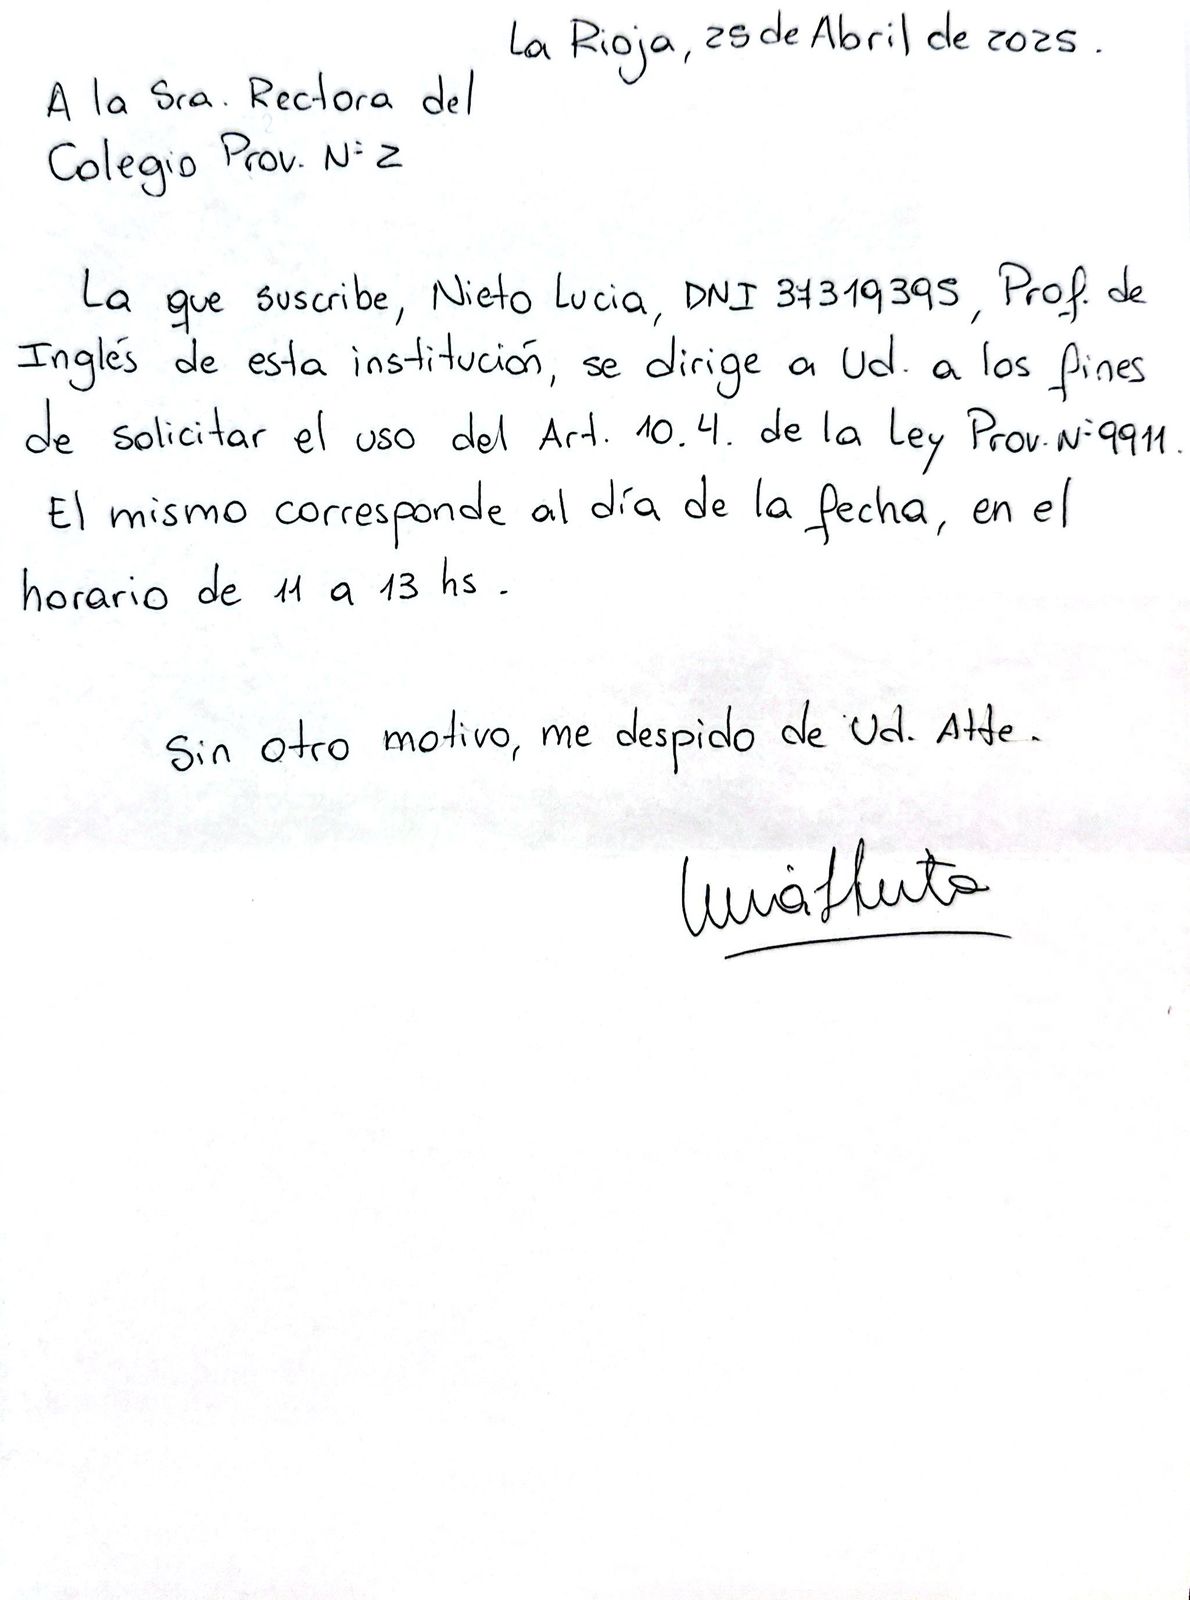 La Rioja, 25 de Abril de 2025.
A la Sra. Rectora del
Colegio Prov. N:2
La que suscribe, Nieto Lucia, DNI 37319395, Prof. de
Inglés de esta institución, se dirige a Ud. a los fines
de solicitar el uso del Art. 10.4. de la Ley Prov. N:9911.
El mismo corresponde al día de la fecha, en el
horario de 11 a 13 hs.
Sin otro motivo, me despido de Ud. Atte.